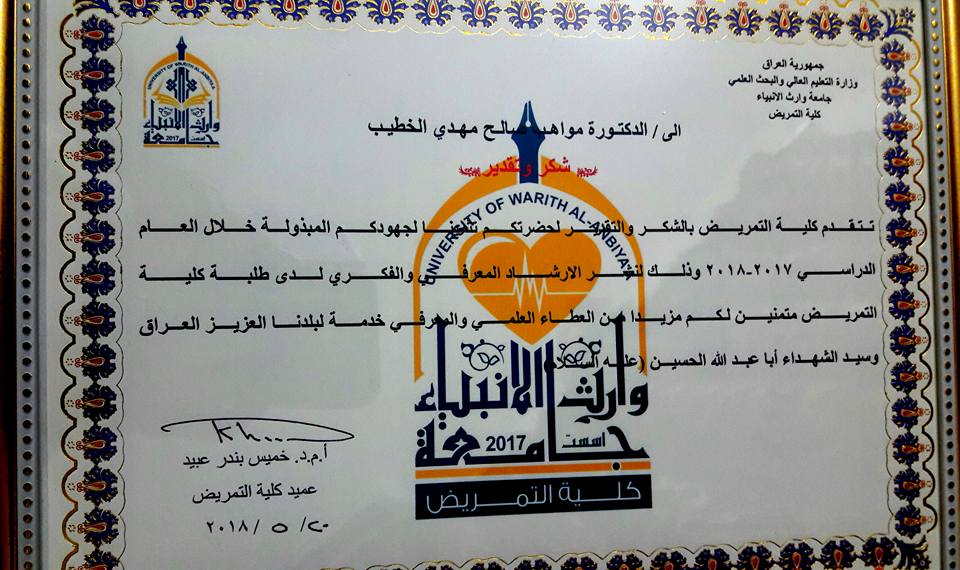 جمهورية العراق
وزارة التعليم العالي والبحث العلمي
جامعة وارث الانبياء
كلية التمريض
UNIVERSITY OF WARITH AL-ANBIYAA
وارث الانبياء
جامعة
اسست
2017
الى / الدكتورة مواهب صالح مهدي الخطيب
شكر وتقدير
تتقدم كلية التمريض بالشكر والتقدير لحضرتكم تثمينا لجهودكم المبذولة خلال العام
الدراسي ٢٠١٧-٢٠١٨ وذلك لنشر الارشاد المعرفي والفكري لدى طلبة كلية
التمريض متمنين لكم مزيدا من العطاء العلمي والمعرفي خدمة لبلدنا العزيز العراق
وسيد الشهداء أبا عبد الله الحسين (عليه السلام)
UNIVERSITY OF WARITH AL-ANBIYAA
وارث الانبياء
جامعة
اسست
2017
كلية التمريض
أ.م.د. خميس بندر عبيد
عميد كلية التمريض
٢٠/ ٥ /٢٠١٨